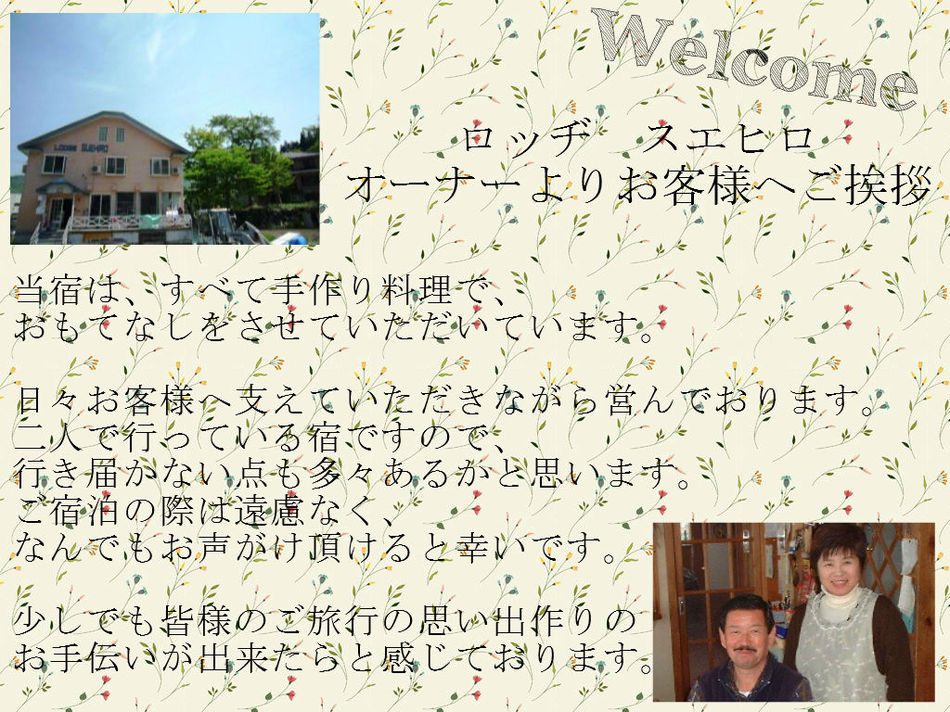 Welcome
LODGE SUEHIRO
ロッヂ　スエヒロ
オーナーよりお客様へご挨拶
当宿は、すべて手作り料理で、
おもてなしをさせていただいています。
日々お客様へ支えていただきながら営んでおります。
二人で行っている宿ですので、
行き届かない点も多々あるかと思います。
ご宿泊の際は遠慮なく、
なんでもお声がけ頂けると幸いです。
少しでも皆様のご旅行の思い出作りの
お手伝いが出来たらと感じております。